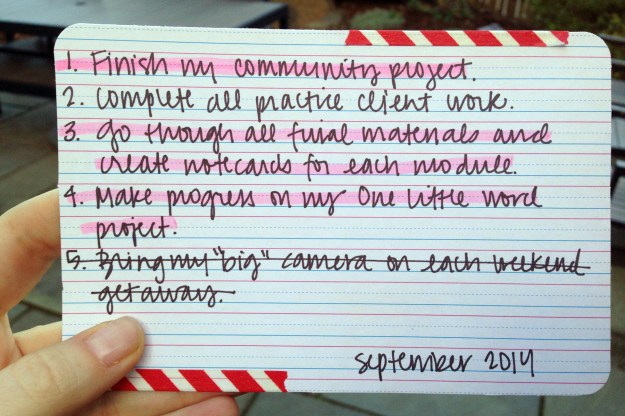 1. Finish my community project.
2. Complete all practice client work.
3. Go though all final materials and
create notecards for each module.
4. Make progress on my One Little Word
project.
5. Bring my "big" camera on each weekend
getaway.
september 2014